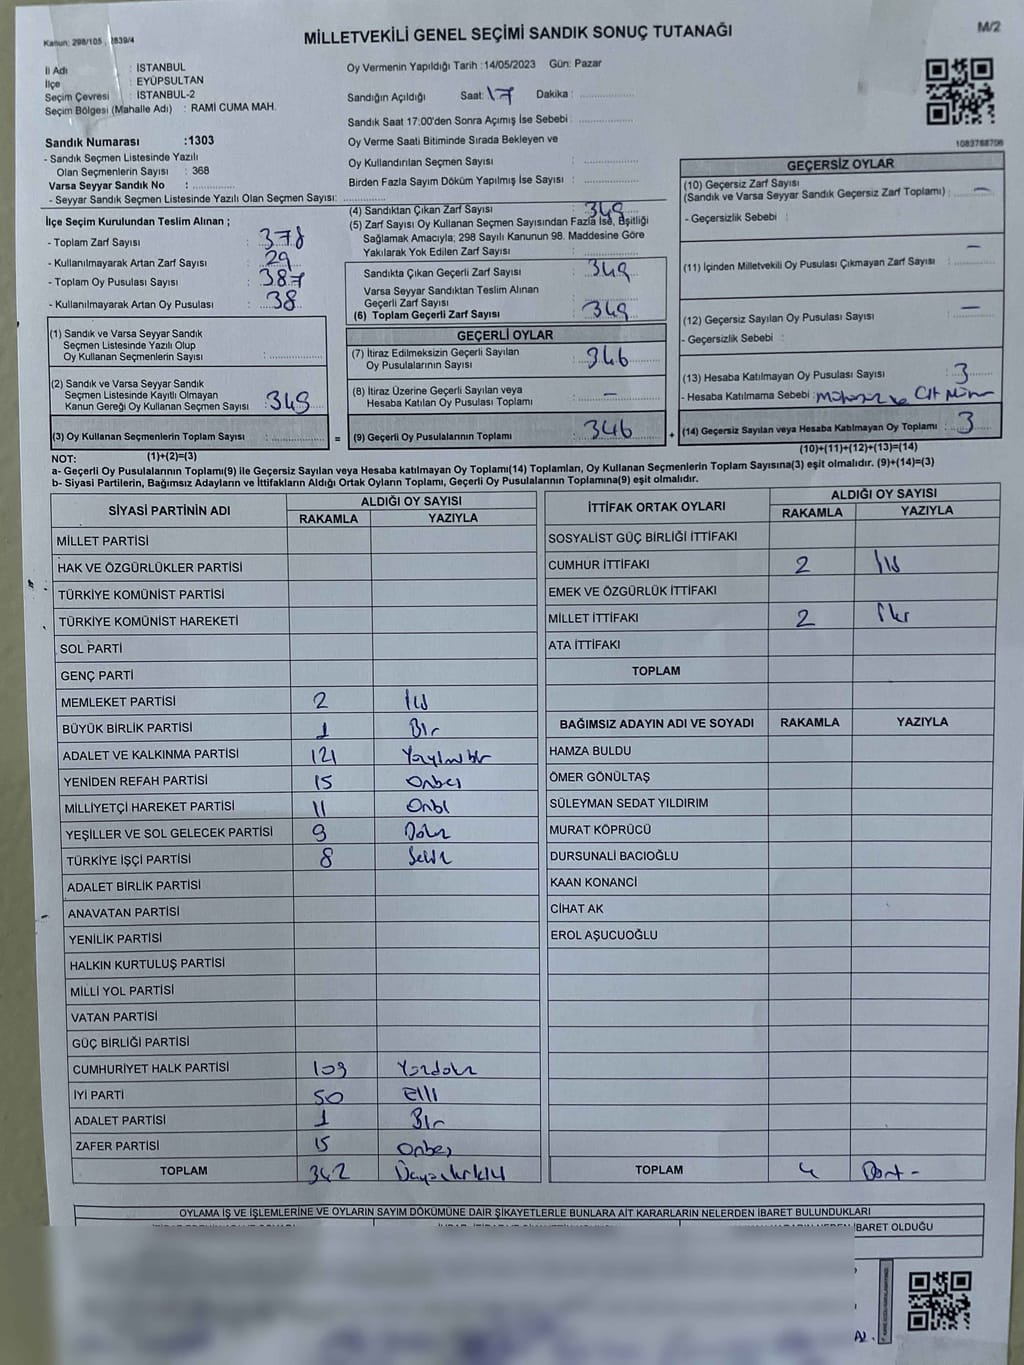 Kanun: 298/105 , 2839/4
MİLLETVEKİLİ GENEL SEÇİMİ SANDIK SONUÇ TUTANAĞI
M/2
İl Adı : İSTANBUL
İlçe : EYÜPSULTAN
Seçim Çevresi : İSTANBUL-2
Seçim Bölgesi (Mahalle Adı) : RAMİ CUMA MAH.
Oy Vermenin Yapıldığı Tarih :14/05/2023 Gün: Pazar
Sandığın Açıldığı Saat: 17 Dakika :
Sandık Saat 17:00'den Sonra Açımış İse Sebebi :
Oy Verme Saati Bitiminde Sırada Bekleyen ve
Oy Kullandırılan Seçmen Sayısı :
Birden Fazla Sayım Döküm Yapılmış İse Sayısı :
1083788706
Sandık Numarası :1303
- Sandık Seçmen Listesinde Yazılı
Olan Seçmenlerin Sayısı : 368
Varsa Seyyar Sandık No :
- Seyyar Sandık Seçmen Listesinde Yazılı Olan Seçmen Sayısı:
İlçe Seçim Kurulundan Teslim Alınan ;
- Toplam Zarf Sayısı : 378
- Kullanılmayarak Artan Zarf Sayısı : 29
- Toplam Oy Pusulası Sayısı : 387
- Kullanılmayarak Artan Oy Pusulası : 38
(1) Sandık ve Varsa Seyyar Sandık
Seçmen Listesinde Yazılı Olup
Oy Kullanan Seçmenlerin Sayısı :
(2) Sandık ve Varsa Seyyar Sandık
Seçmen Listesinde Kayıtlı Olmayan
Kanun Gereği Oy Kullanan Seçmen Sayısı : 349
(3) Oy Kullanan Seçmenlerin Toplam Sayısı :
(1)+(2)=(3)
(4) Sandıktan Çıkan Zarf Sayısı : 349
(5) Zarf Sayısı Oy Kullanan Seçmen Sayısından Fazla İse, Eşitliği
Sağlamak Amacıyla; 298 Sayılı Kanunun 98. Maddesine Göre
Yakılarak Yok Edilen Zarf Sayısı :
Sandıkta Çıkan Geçerli Zarf Sayısı : 349
Varsa Seyyar Sandıktan Teslim Alınan
Geçerli Zarf Sayısı :
(6) Toplam Geçerli Zarf Sayısı : 349
GEÇERLİ OYLAR
(7) İtiraz Edilmeksizin Geçerli Sayılan
Oy Pusulalarının Sayısı : 346
(8) İtiraz Üzerine Geçerli Sayılan veya
Hesaba Katılan Oy Pusulası Toplamı : —
= (9) Geçerli Oy Pusulalarının Toplamı : 346 +
GEÇERSİZ OYLAR
(10) Geçersiz Zarf Sayısı
(Sandık ve Varsa Seyyar Sandık Geçersiz Zarf Toplamı) : —
- Geçersizlik Sebebi :
(11) İçinden Milletvekili Oy Pusulası Çıkmayan Zarf Sayısı : —
(12) Geçersiz Sayılan Oy Pusulası Sayısı : —
- Geçersizlik Sebebi :
(13) Hesaba Katılmayan Oy Pusulası Sayısı : 3
- Hesaba Katılmama Sebebi : Mühürsüz ve
(14) Geçersiz Sayılan veya Hesaba Katılmayan Oy Toplamı : 3
(10)+(11)+(12)+(13)=(14)
NOT:
a- Geçerli Oy Pusulalarının Toplamı(9) ile Geçersiz Sayılan veya Hesaba katılmayan Oy Toplamı(14) Toplamları, Oy Kullanan Seçmenlerin Toplam Sayısına(3) eşit olmalıdır. (9)+(14)=(3)
b- Siyasi Partilerin, Bağımsız Adayların ve İttifakların Aldığı Ortak Oyların Toplamı, Geçerli Oy Pusulalarının Toplamına(9) eşit olmalıdır.
SİYASİ PARTİNİN ADI ALDIĞI OY SAYISI
RAKAMLA YAZIYLA
MİLLET PARTİSİ
HAK VE ÖZGÜRLÜKLER PARTİSİ
TÜRKİYE KOMÜNİST PARTİSİ
TÜRKİYE KOMÜNİST HAREKETİ
SOL PARTİ
GENÇ PARTİ
MEMLEKET PARTİSİ 2 İki
BÜYÜK BİRLİK PARTİSİ 1 Bir
ADALET VE KALKINMA PARTİSİ 121 Yüzyirmibir
YENİDEN REFAH PARTİSİ 15 Onbeş
MİLLİYETÇİ HAREKET PARTİSİ 11 Onbi
YEŞİLLER VE SOL GELECEK PARTİSİ 9 Dokuz
TÜRKİYE İŞÇİ PARTİSİ 8 Sekiz
ADALET BİRLİK PARTİSİ
ANAVATAN PARTİSİ
YENİLİK PARTİSİ
HALKIN KURTULUŞ PARTİSİ
MİLLİ YOL PARTİSİ
VATAN PARTİSİ
GÜÇ BİRLİĞİ PARTİSİ
CUMHURİYET HALK PARTİSİ 109 Yüzdokuz
İYİ PARTİ 50 Elli
ADALET PARTİSİ 1 Bir
ZAFER PARTİSİ 15 Onbeş
TOPLAM 342 Üçyüzkırkiki
İTTİFAK ORTAK OYLARI ALDIĞI OY SAYISI
RAKAMLA YAZIYLA
SOSYALİST GÜÇ BİRLİĞİ İTTİFAKI
CUMHUR İTTİFAKI 2 İki
EMEK VE ÖZGÜRLÜK İTTİFAKI
MİLLET İTTİFAKI 2 İki
ATA İTTİFAKI
TOPLAM
BAĞIMSIZ ADAYIN ADI VE SOYADI RAKAMLA YAZIYLA
HAMZA BULDU
ÖMER GÖNÜLTAŞ
SÜLEYMAN SEDAT YILDIRIM
MURAT KÖPRÜCÜ
DURSUNALİ BACIOĞLU
KAAN KONANCİ
CİHAT AK
EROL AŞUCUOĞLU
TOPLAM 4 Dört -
OYLAMA İŞ VE İŞLEMLERİNE VE OYLARIN SAYIM DÖKÜMÜNE DAİR ŞİKAYETLERLE BUNLARA AİT KARARLARIN NELERDEN İBARET BULUNDUKLARI
İBARET OLDUĞU